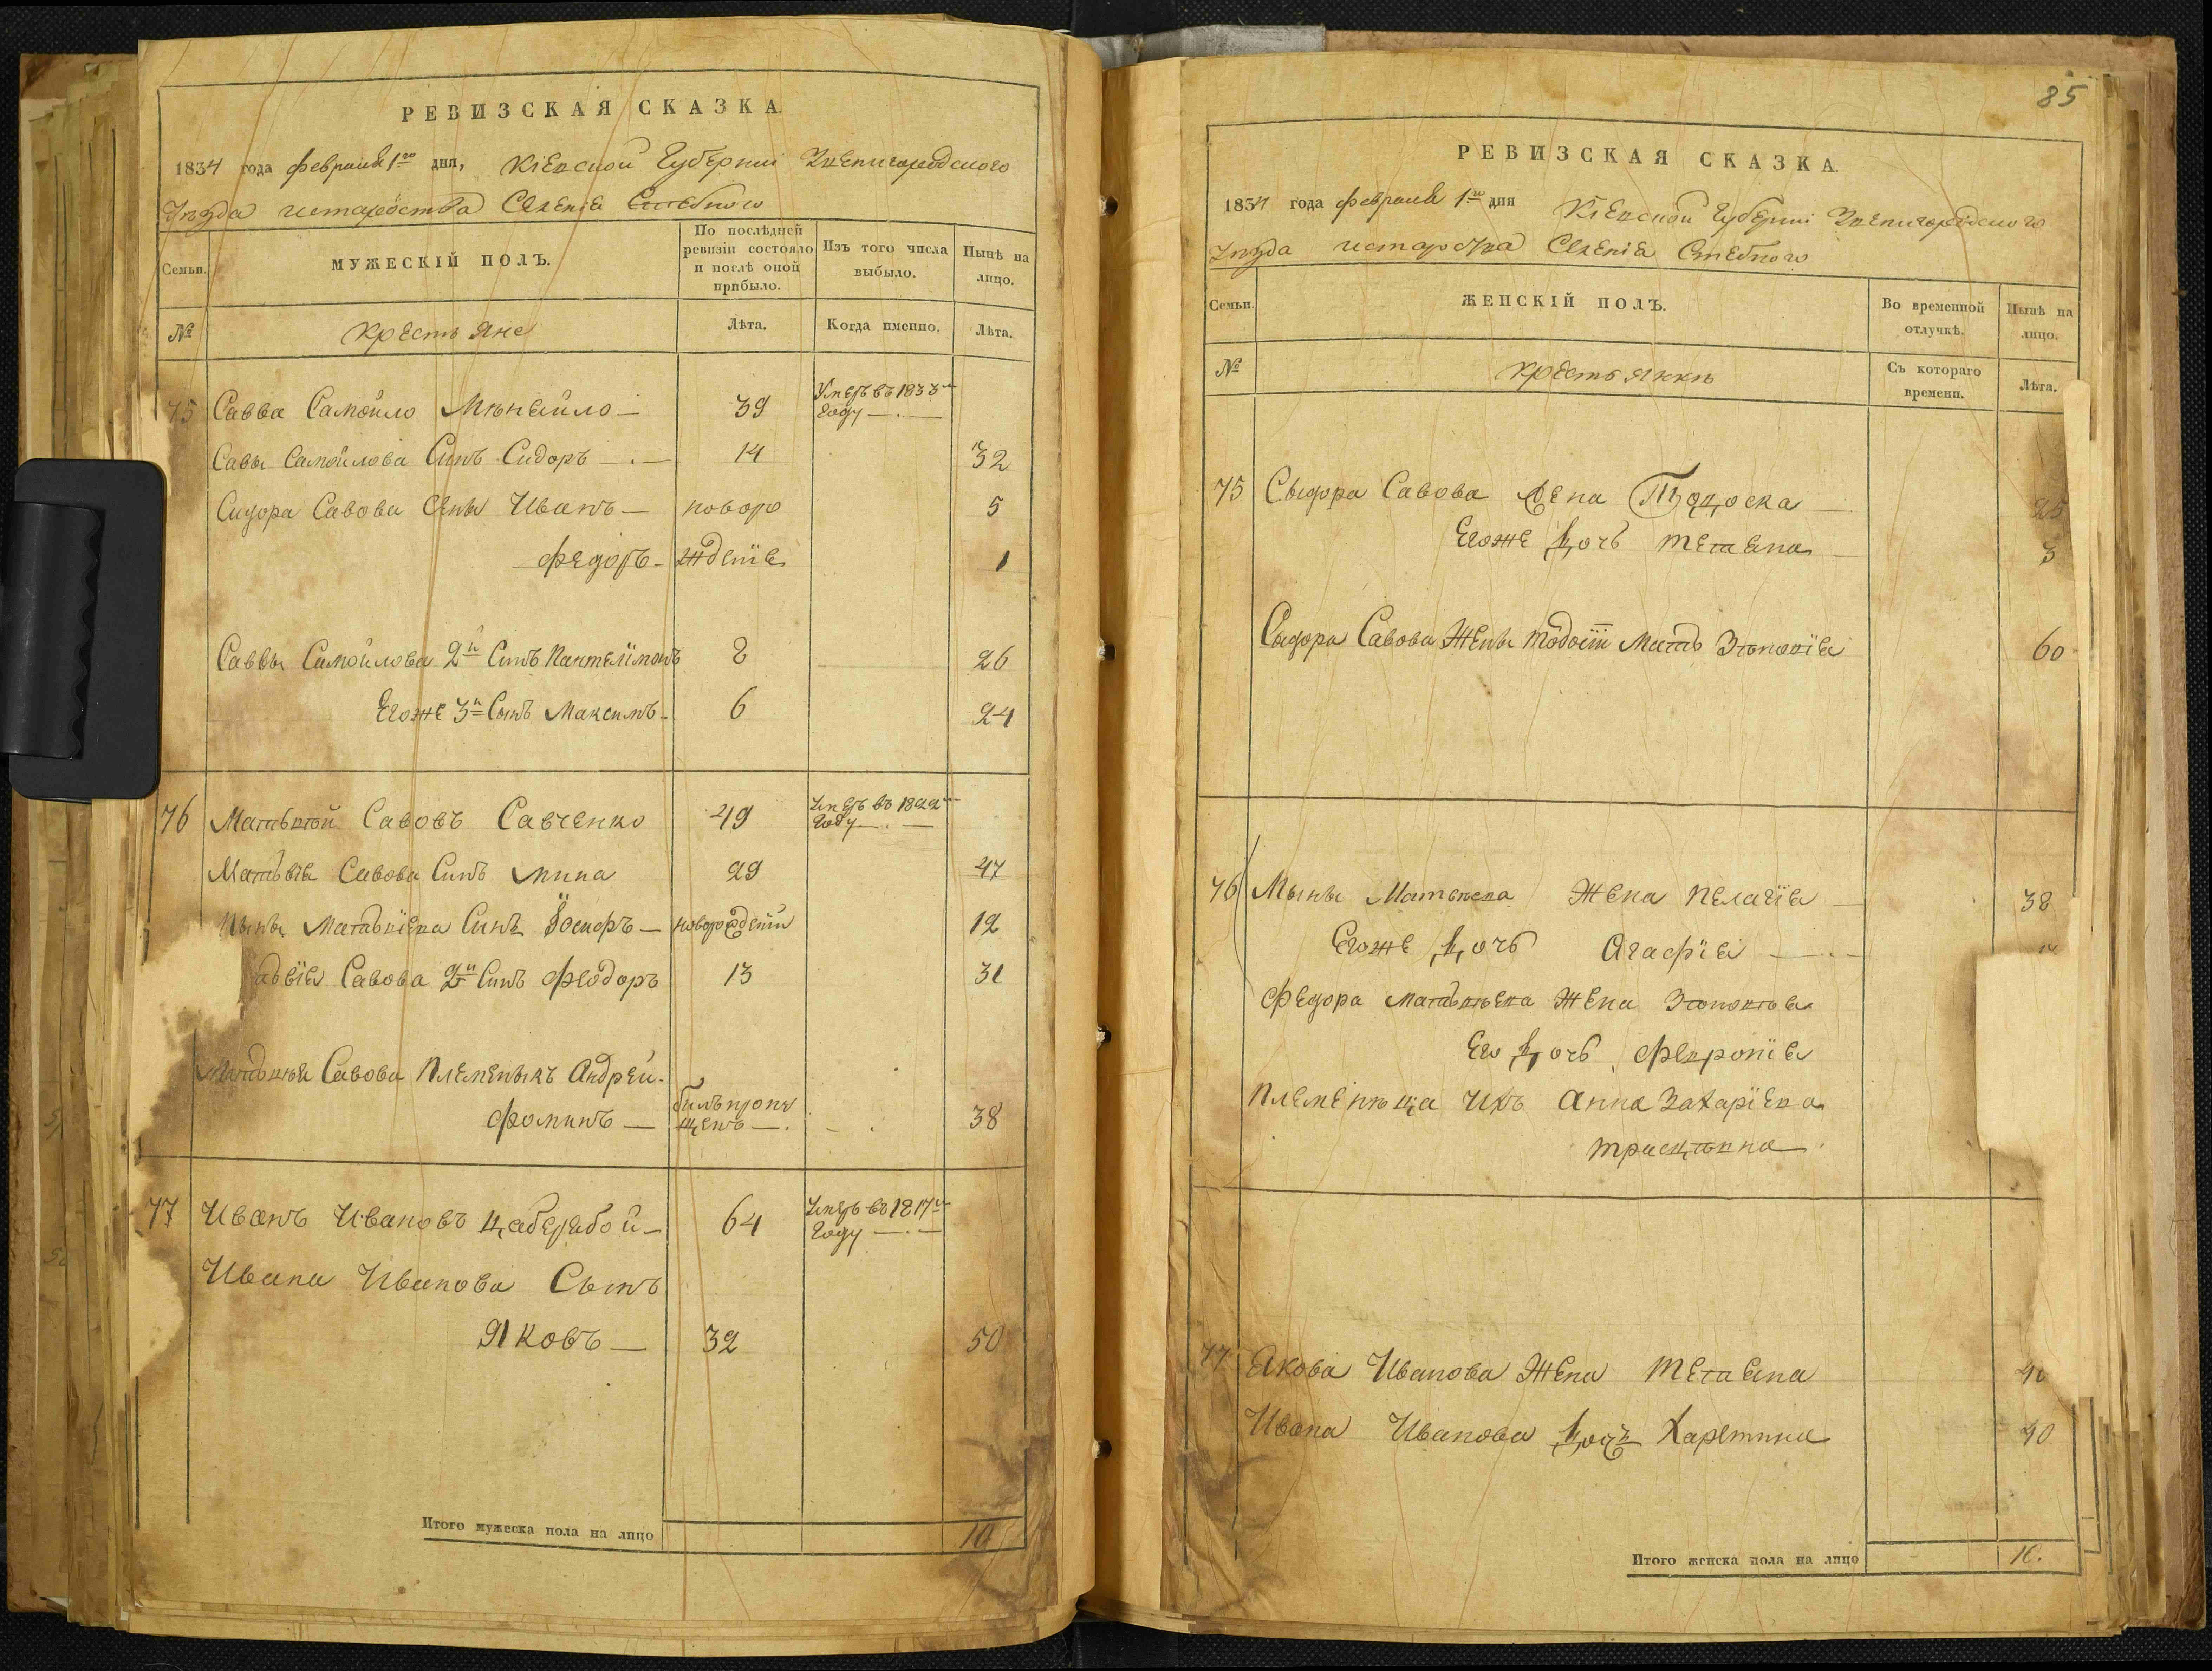 РЕВИЗСКАЯ СКАЗКА.
1834 года февраля 1го дня, Кіевской Губерніи Звенигородского
Уезда истароства Селенія Стебного
Семьи.
МУЖЕСКІЙ ПОЛЪ.
По послѣдней ревизіи состояло и послѣ оной прибыло.
Изъ того числа выбыло.
Нынѣ на лицо.
№
Крестьяне
Лѣта.
Когда именно.
Лѣта.
75 Савва Самойло 39 Умеръ въ 1833м Году
Савы Самойлова Синъ Сидоръ 14 32
Сидора Савова Сены Иванъ новоро 5
Федоръ ждение 1
Саввы Самойлова 2й Синъ Пантелимонъ 8 26
Егоже 3й Сынъ Максимъ 6 24
76 Матвѣй Савовъ Савченко 49 Умеръ въ 1822м Году
Матвѣя Савова Синъ Мина 29 47
Мины Матвіева Синъ Іосифъ новорождени 12
Савова 2й Синъ Феодоръ 13 31
Савова Племеныкъ Андрей
Фоминъ билъ пропущенъ 38
77 Иванъ Ивановъ 64 Умеръ въ 1817м Году
Ивана Иванова Сынъ
Яковъ 32 50
Итого мужеска пола на лицо 10
85
РЕВИЗСКАЯ СКАЗКА.
1834 года февраля 1го дня Кіевской Губерніи Звенигородского
Уезда Селенія Стебного
Семьи.
ЖЕНСКІЙ ПОЛЪ.
Во временной отлучкѣ.
Нынѣ на лицо.
№
Крестьянки
Съ котораго времени.
Лѣта.
75 Сыдора Савова Жена Тодоска 25
Егоже Дочь Тетяна 3
Сыдора Савова Жены Мать 60
76 Мыны Матвеева Жена Пелагія 38
Егоже Дочь Агафія
Федора Жена
Его Дочь Февронія
Племеница Ихъ Анна Захаріева
77 Якова Иванова Жена Тетяна 40
Ивана Иванова Дочъ Харетина 40
Итого женска пола на лицо 10.